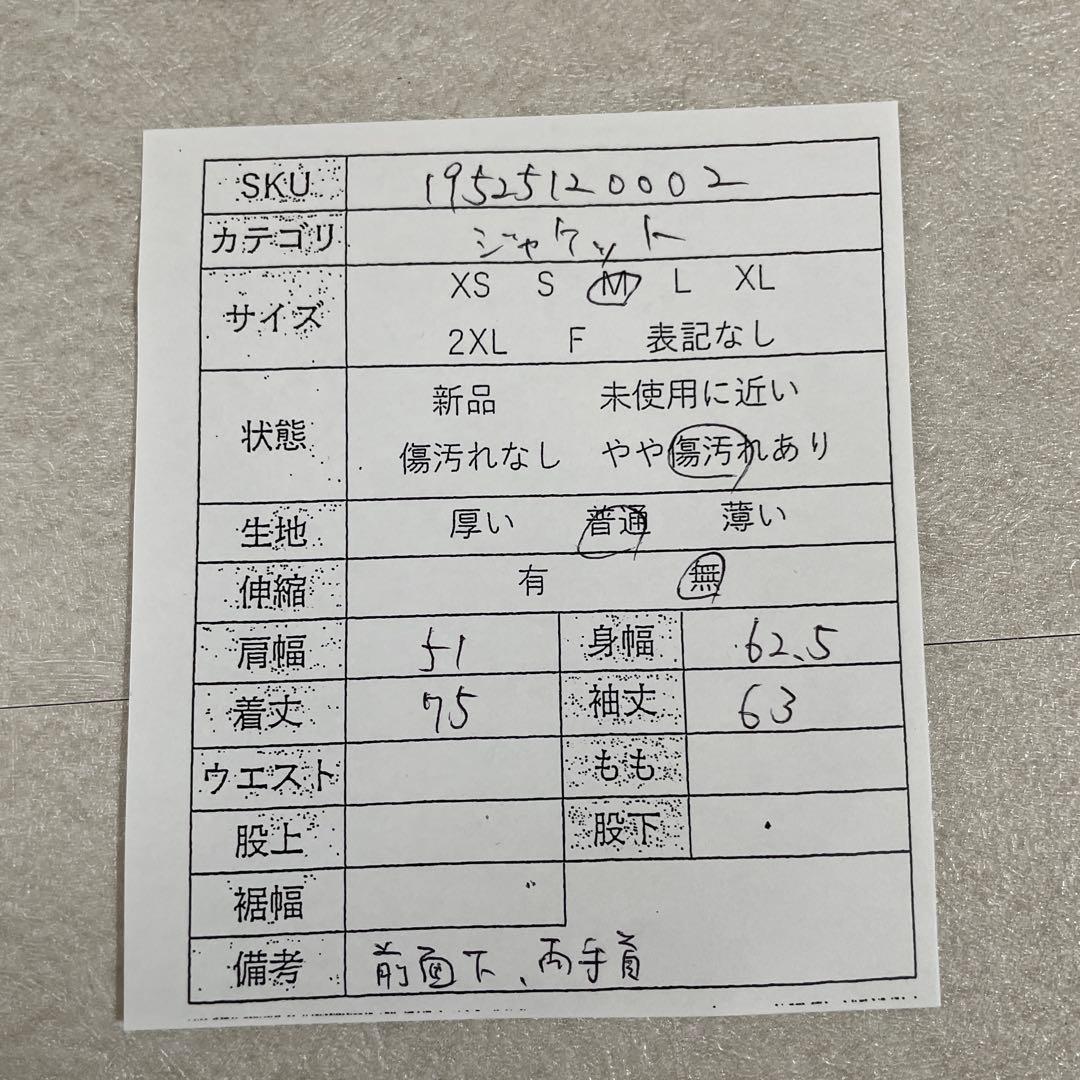 SKU 19525120002
カテゴリ ジャケット
サイズ XS S M L XL
2XL F 表記なし
状態 新品 未使用に近い
傷汚れなし やや傷汚れあり
生地 厚い 普通 薄い
伸縮 有 無
肩幅 51 身幅 62.5
着丈 75 袖丈 63
ウエスト もも
股上 股下
裾幅
備考 前面下、両手首